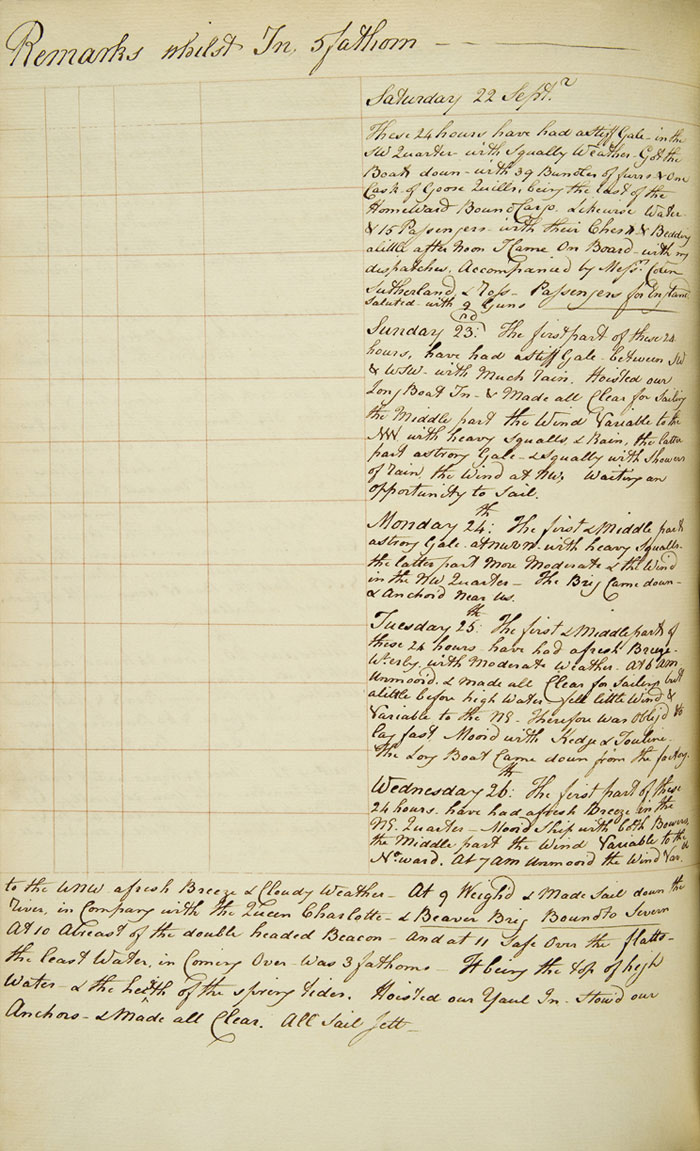 Remarks whilst In, 5 fathom
Saturday 22 Sept.r
These 24 hours have had a stiff Gale - in the
SW Quarter - with Squally Weather - Got the
Boat down - with 39 Bundles of furrs & One
Cask of Goose Quills, being the last of the
HomeWard Bound Cargo. Likewise Water
& 15 Passengers - with their Chests & Bedding
a little after Noon I Came On Board - with my
dispatches. Accompanied by Mess.rs
Sutherland, & Ross - Passengers for England
Saluted with 9 Guns
Sunday 23.rd The first part of these 24
hours, have had a stiff Gale - between SW
& WSW - with Much rain. Hoisted our
Long Boat In - & Made all Clear for Sailing
the Middle part the Wind Variable to the
NW with heavy Squalls & Rain, the latter
part a strong Gale - & Squally with Showers
of rain the Wind at NW. Waiting an
opportunity to Sail.
Monday 24:th The first & Middle part
a strong Gale - at NWbN - with heavy Squalls -
the latter part More Moderate & the Wind
in the NW Quarter - The Brig Came down -
& Anchor'd Near Us.
Tuesday 25:th The first & Middle part of
these 24 hours - have had a fresh Breeze -
W.erly, with Moderate Weather. At 6 am
Unmoor'd. & made all Clear for Sailing but
a little before high Water - fell little Wind &
Variable to the NE - Therefore was Oblig'd to
lay fast Moor'd with Kedge & Touline -
The Long Boat Came down from the factory.
Wednesday 26:th The first part of these
24 hours. have had a fresh Breeze in the
NE. Quarter - Moor'd Ship with both Bowers,
the Middle part the Wind Variable to the
No.ward. At 7 am Unmoor'd the Wind Var.
to the WNW a fresh Breeze & Cloudy Weather - At 9 Weigh'd & Made Sail down the
River, in Company with the Queen Charlotte - & Beaver Brig Bound to Severn
At 10 Abreast of the double headed Beacon - And at 11 Safe Over the flatts -
the least Water, in Coming Over - Was 3 fathoms - It being the top of high
Water - & the heith of the spring tides. Hoisted our Yaul In - Stow'd our
Anchors - & Made all Clear. All Sail Sett -